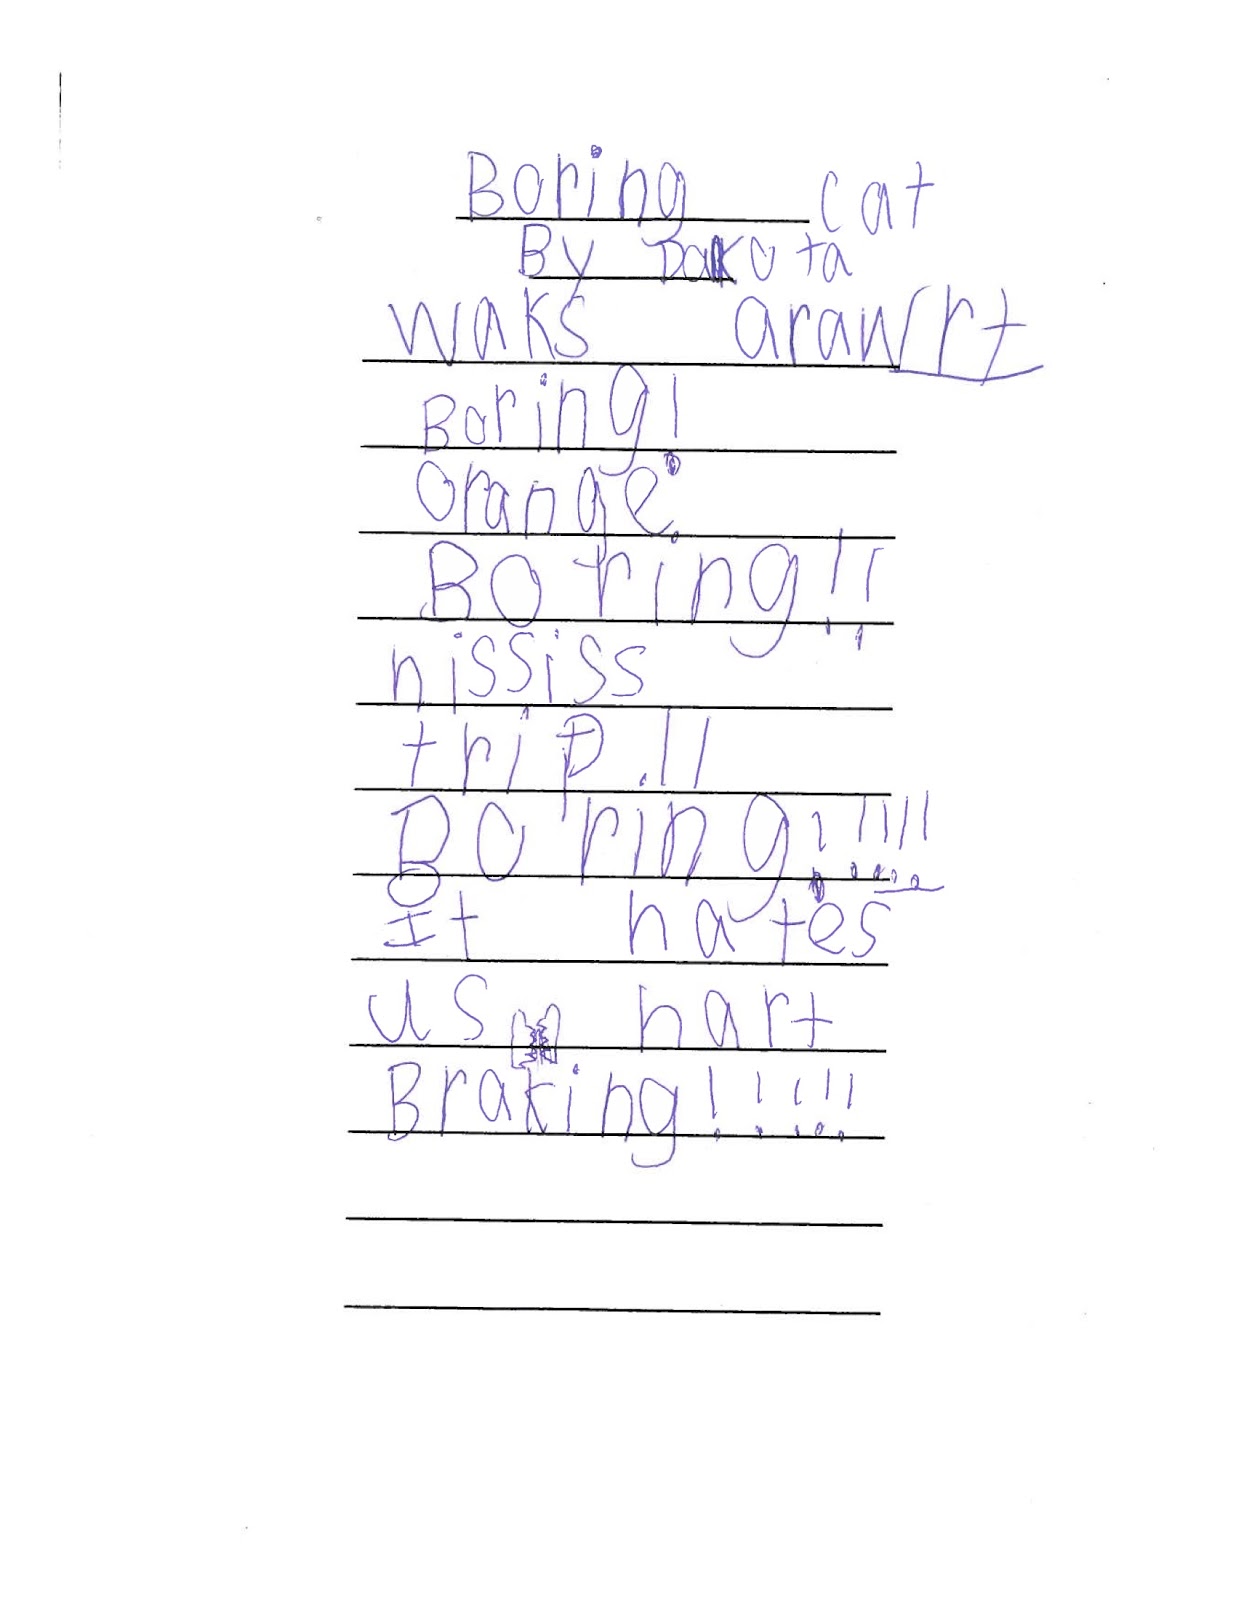 Boring cat
By Dakota
waks arawrt
Boring!
orange.
Boring!!
nississ
trip.!!
Boring!!!!!
It hates
us hart
Braking!!!!!